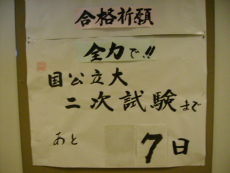 合格祈願
全力で!!
国公立大
二次試験まで
あと 7日